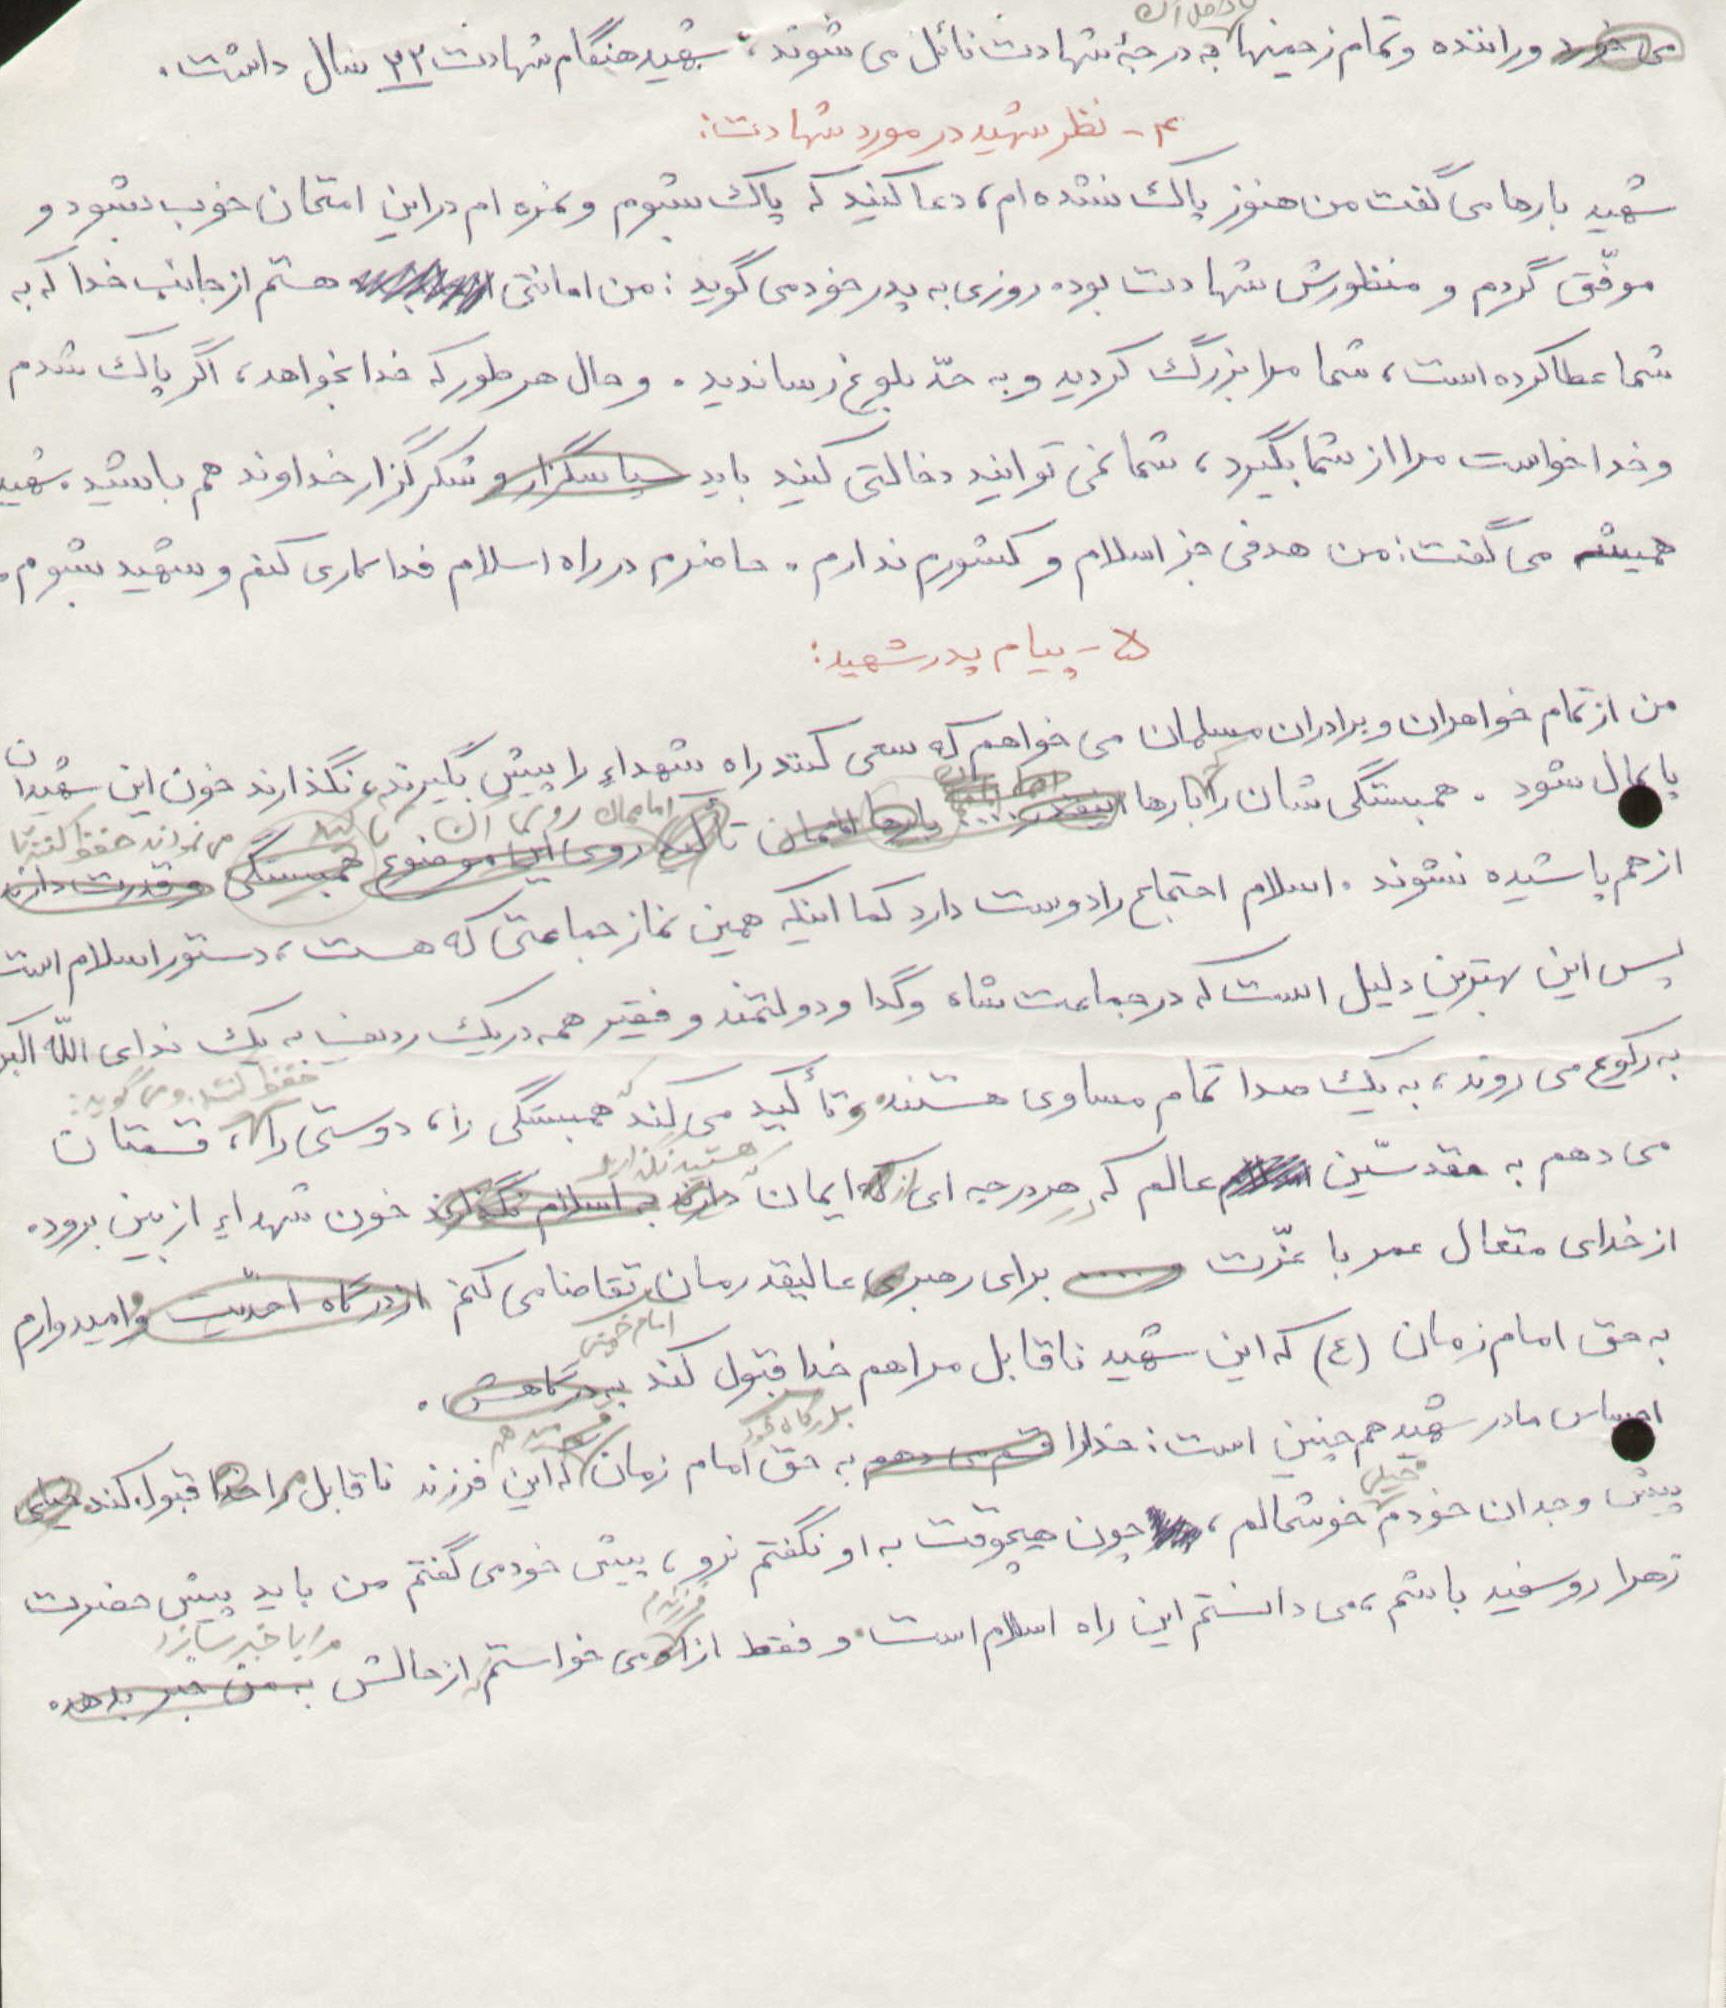 می خورد و راننده و تمام زخمیها به درجهٔ شهادت نائل می شوند، شهید هنگام شهادت ۲۳ سال داشت.
۴- نظر شهید در مورد شهادت:
شهید بارها می گفت من هنوز پاک نشده ام، دعا کنید که پاک بشوم و نمره ام در این امتحان خوب بشود و
موفّق گردم و منظورش شهادت بوده روزی به پدر خود می گوید: من امانتی هستم از جانب خدا که به
شما عطا کرده است، شما مرا بزرگ کردید و به حدّ بلوغ رساندید. و حال هر طور که خدا بخواهد، اگر پاک شدم
و خدا خواست مرا از شما بگیرد، شما نمی توانید دخالتی کنید باید سپاسگزار و شکرگزار خداوند هم باشید. شهید
همیشه می گفت: من هدفی جز اسلام و کشورم ندارم. حاضرم در راه اسلام فداکاری کنم و شهید بشوم.
۵- پیام پدر شهید:
من از تمام خواهران و برادران مسلمان می خواهم که سعی کنند راه شهداء را پیش بگیرند، نگذارند خون این شهیدان
پایمال شود. همبستگی شان را بارها اینقدر بارها امامان تأکید روی این موضوع همبستگی و قدرت دارند
امامان روی آن تأکید می نمودند حفظ کنند تا
از هم پاشیده نشوند. اسلام اجتماع را دوست دارد کما اینکه همین نماز جماعتی که هست، دستور اسلام است
پس این بهترین دلیل است که در جماعت شاه و گدا و دولتمند و فقیر همه در یک ردیف به یک ندای اللّه اکبر
به رکوع می روند، به یک صدا تمام مساوی هستند و تأکید می کند که همبستگی را، دوستی را، قسمتان
حفظ کنند. و می گوید:
می دهم به مقدسّین عالم که در هر درجه ای از ایمان دارند به اسلام نگذارند خون شهداء از بین برود.
هستید نگذارید
از خدای متعال عمر با عزّت ..... برای رهبری عالیقدرمان تقاضا می کنم از درگاه احدّیت و امیدوارم
امام خمینی
به حق امام زمان (ع) که این شهید ناقابل مرا هم خدا قبول کند به درگاهش.
بدرگاه خود
احساس مادر شهید هم چنین است: خدارا قسم می دهم به حق امام زمان که این فرزند ناقابل مرا خدا قبول کند خیلی
خیلی
پیش وجدان خودم خوشحالم، چون هیچوقت به او نگفتم نرو، پیش خود می گفتم من باید پیش حضرت
زهرا روسفید باشم، می دانستم این راه اسلام است و فقط از او می خواستم از حالش به من خبر بدهد.
فرزندم مرا با خبر سازد